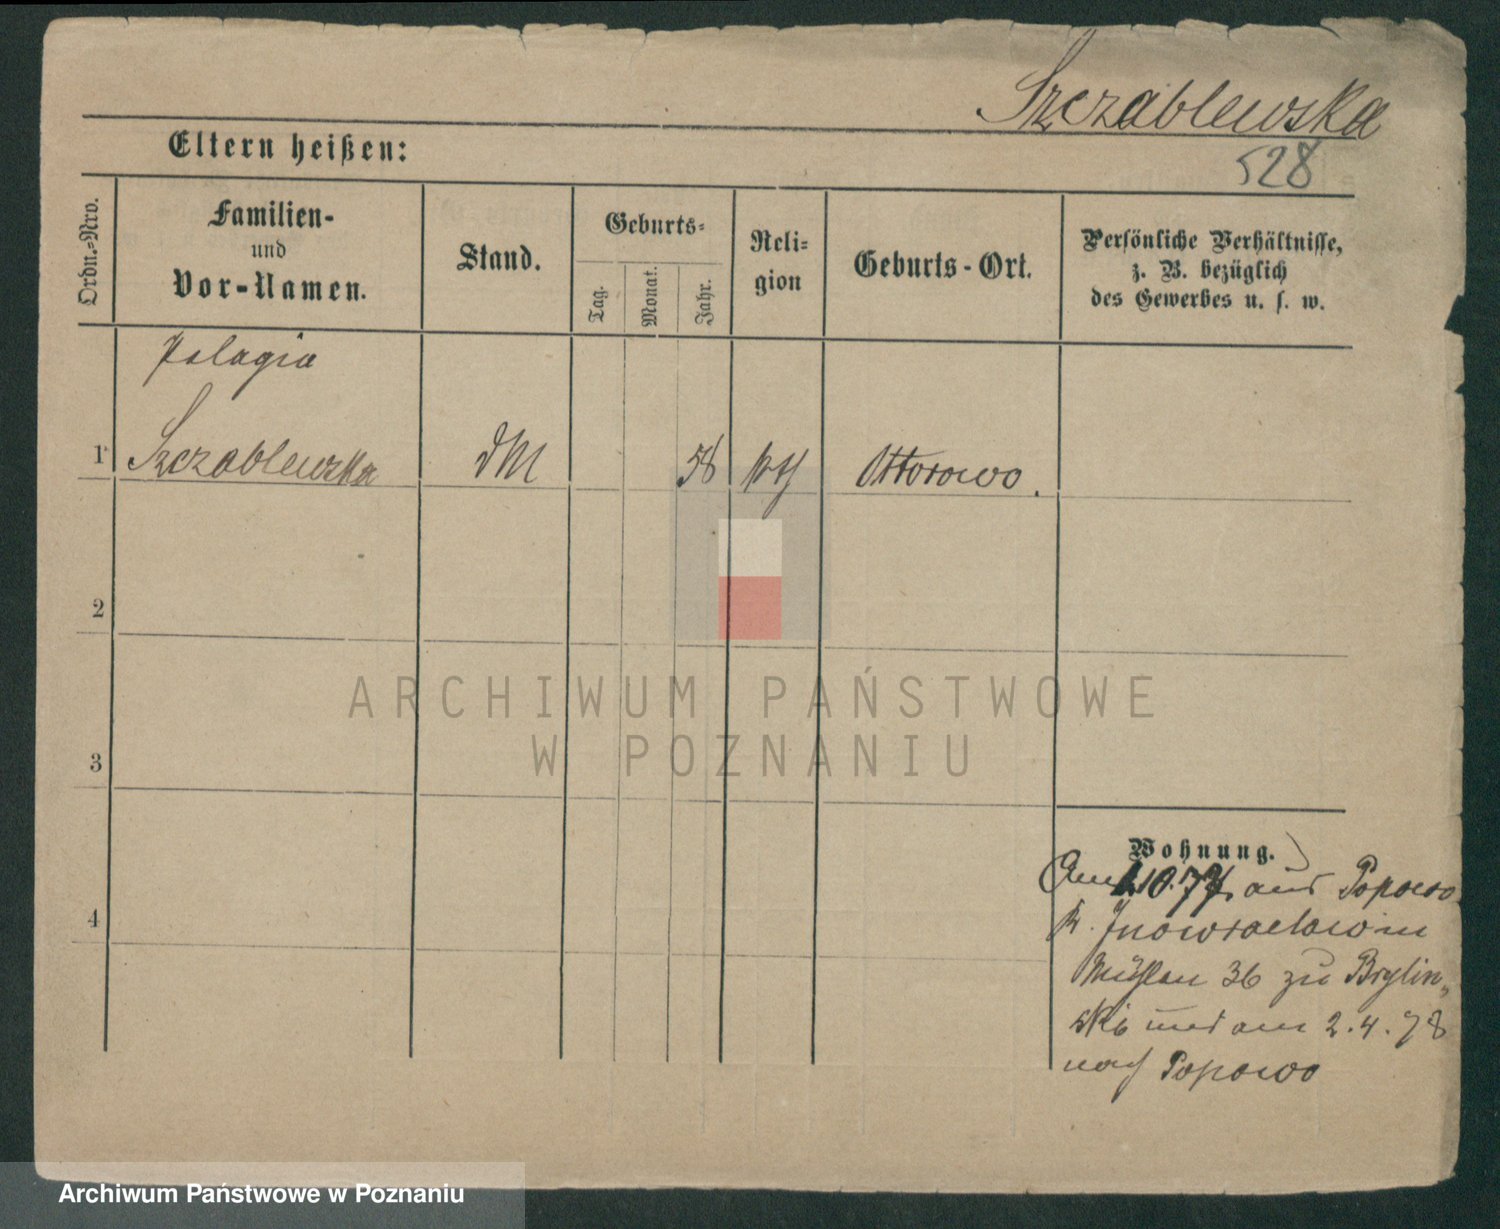 Szczablewska
Eltern heißen:
528
Ordn.-Nro.
Familien-
und
Vor-Namen.
Stand.
Geburts-
Tag.
Monat.
Jahr.
Reli-
gion
Geburts-Ort.
Persönliche Verhältnisse,
z. B. bezüglich
des Gewerbes u. s. w.
Pelagia
1 Szczablewska dM 58 kth Ottorowo.
2
3
4
ARCHIWUM PAŃSTWOWE
W POZNANIU
Wohnung.
Am 1.10.77 aus Popowo
K. Inowraclaw in
Mühlen 36 zu Brylin„
ski und am 2.4.78
nach Popowo
Archiwum Państwowe w Poznaniu